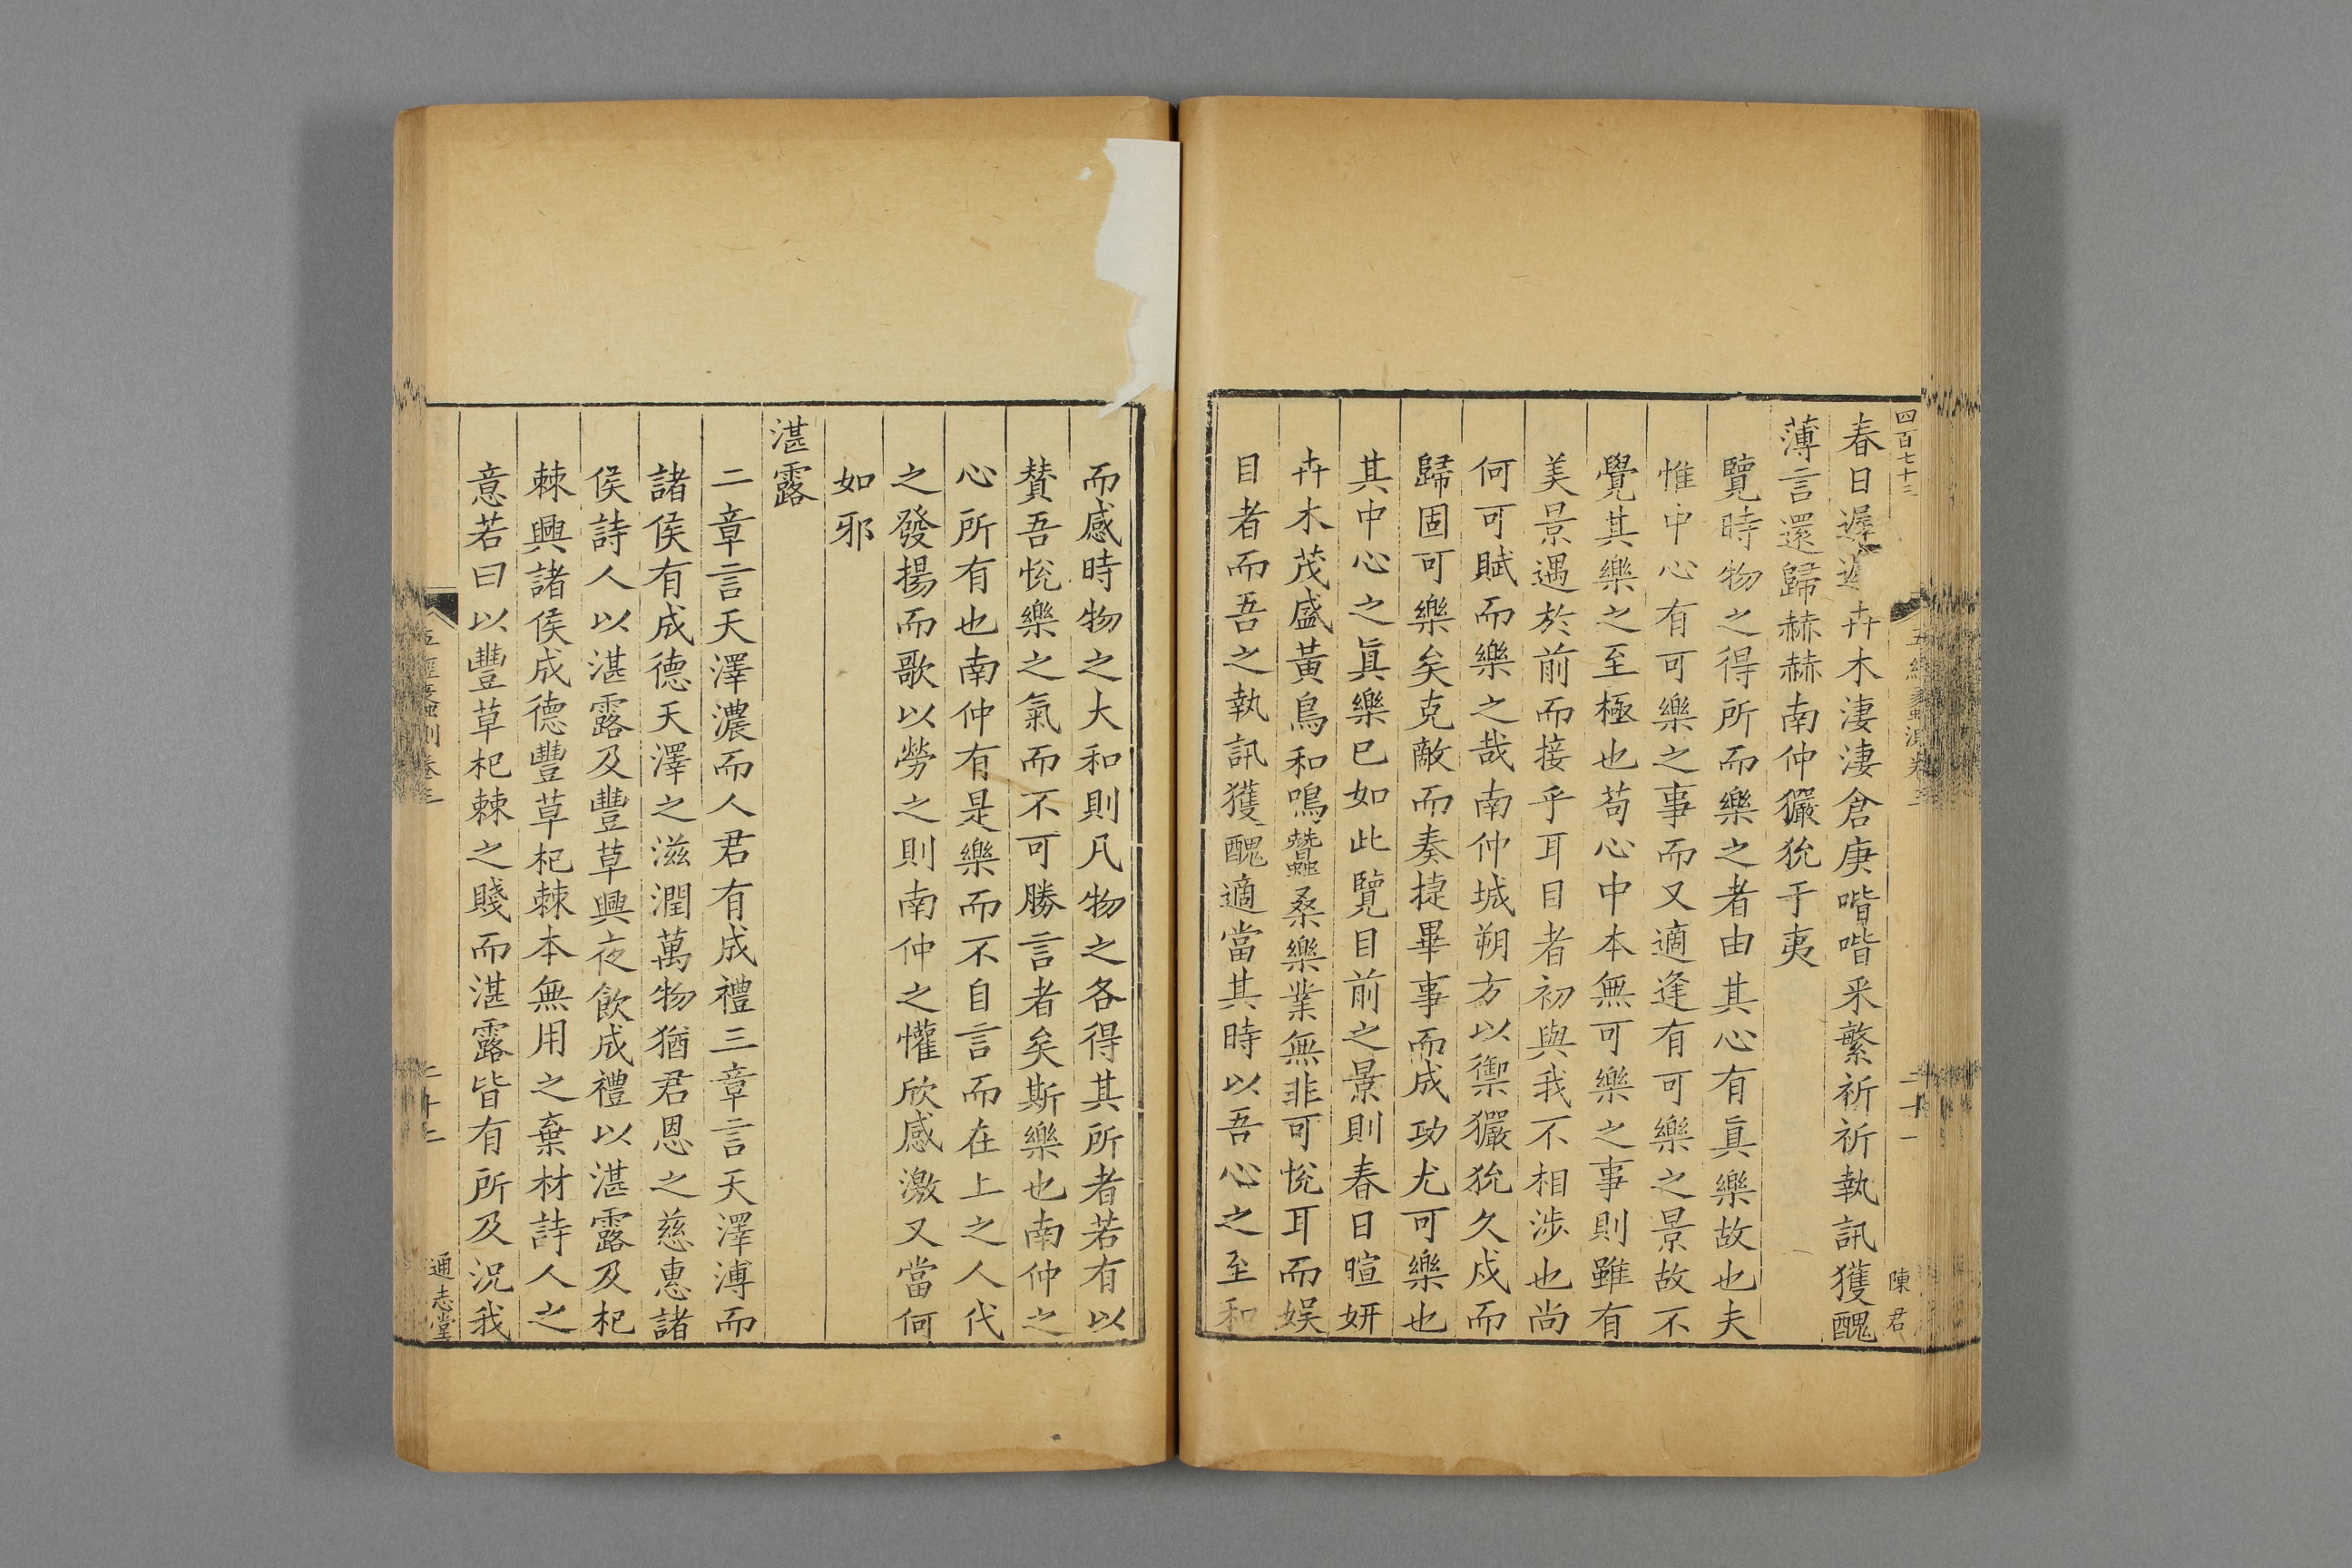 四百七十三
春日遲遲卉木淒淒倉庚喈喈采蘩祈祈執訊獲醜
薄言還歸赫赫南仲玁狁于夷
覽時物之得所而樂之者由其心有眞樂故也夫
惟中心有可樂之事而又適逢有可樂之景故不
覺其樂之至極也苟心中本無可樂之事則雖有
美景遇於前而接乎耳目者初與我不相涉也尚
何可賦而樂之哉南仲城朔方以禦玁狁久戍而
歸固可樂矣克敵而奏捷畢事而成功尤可樂也
其中心之眞樂已如此覽目前之景則春日暄妍
卉木茂盛黃鳥和鳴蠶桑樂業無非可悅耳而娛
目者而吾之執訊獲醜適當其時以吾心之至和
五經蠡測卷三
二十一
陳君
而感時物之大和則凡物之各得其所者若有以
賛吾悅樂之氣而不可勝言者矣斯樂也南仲之
心所有也南仲有是樂而不自言而在上之人代
之發揚而歌以勞之則南仲之懽欣感激又當何
如邪
湛露
二章言天澤濃而人君有成禮三章言天澤溥而
諸侯有成德天澤之滋潤萬物猶君恩之慈惠諸
侯詩人以湛露及豐草興夜飲成禮以湛露及杞
棘興諸侯成德豐草杞棘本無用之棄材詩人之
意若曰以豐草杞棘之賤而湛露皆有所及況我
五經蠡測卷三
二十二
通志堂